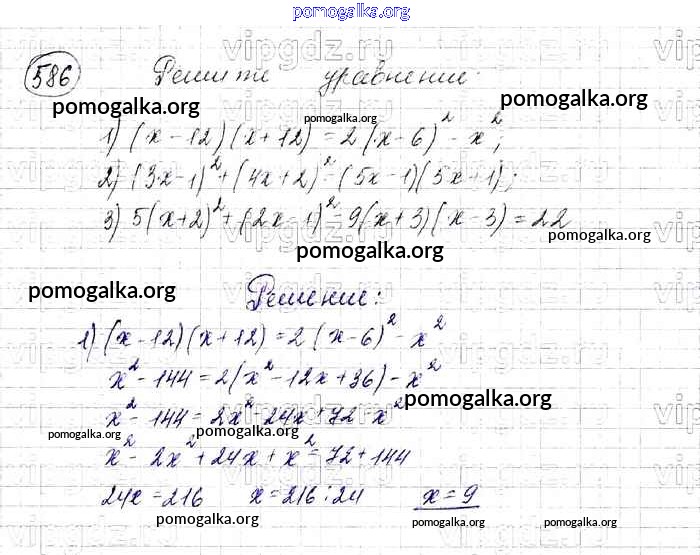 pomogalka.org
vipgdz.ru
586 Решите уравнение:
pomogalka.org pomogalka.org
1) (x-12)(x+12) = 2(x-6)² - x²;
2) (3x-1)² + (4x+2)² = (5x-1)(5x+1);
3) 5(x+2)² + (2x-1)² - 9(x+3)(x-3) = 22
pomogalka.org pomogalka.org
pomogalka.org Решение:
1) (x-12)(x+12) = 2(x-6)² - x²
x² - 144 = 2(x² - 12x + 36) - x²
pomogalka.org
x² - 144 = 2x² - 24x + 72 - x²
pomogalka.org pomogalka.org pomogalka.org
x² - 2x² + 24x + x² = 72 + 144
24x = 216 x = 216 : 24 x = 9
pomogalka.org pomogalka.org pomogalka.org